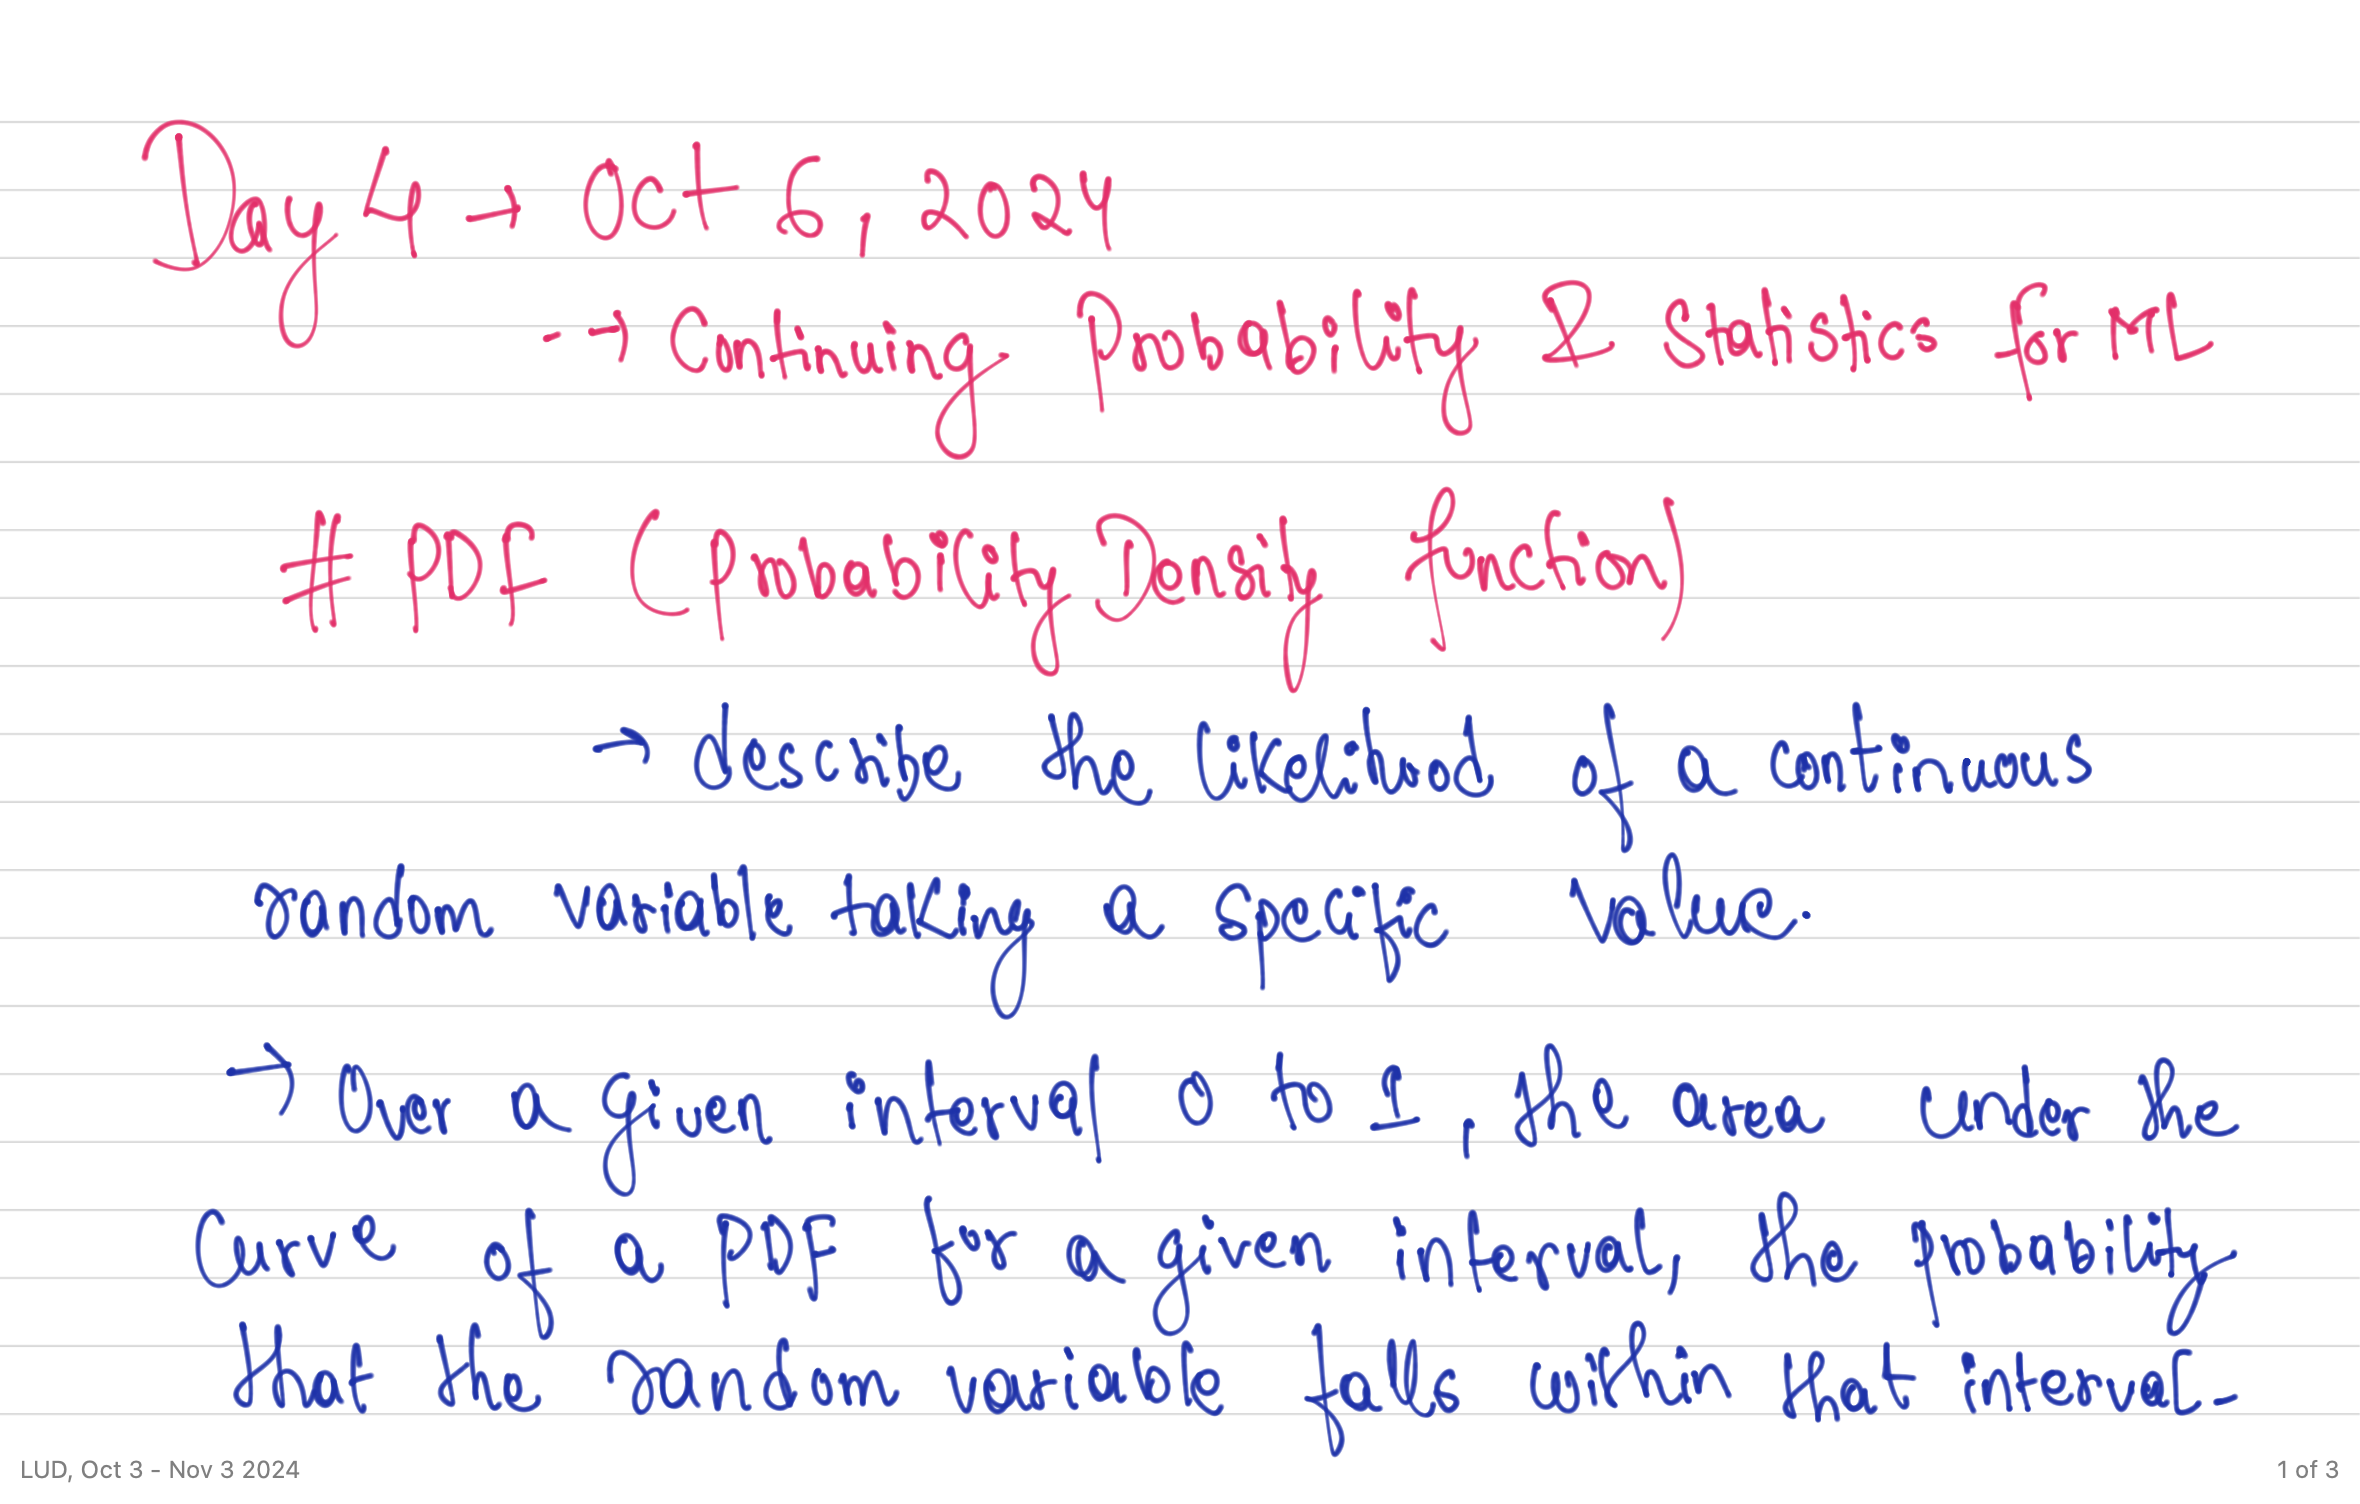 Day 4 → Oct 6, 2024
- → Continuing Probability & Statistics for ML
# PDF (Probability Density function)
→ describe the likelihood of a continuous
random variable taking a specific value.
→ Over a given interval 0 to 1, the area under the
Curve of a PDF for a given interval, the probability
that the random variable falls within that interval.
LUD, Oct 3 - Nov 3 2024
1 of 3